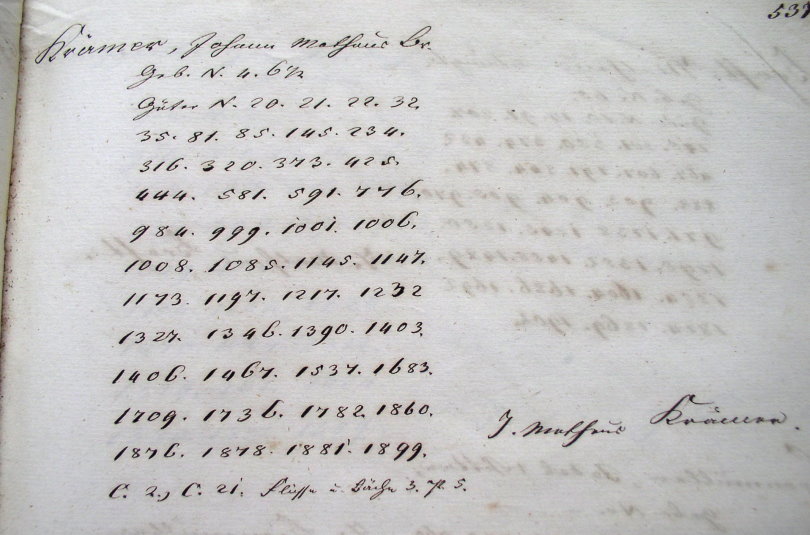 533
Krämer, Johann Mathäus Br.
Geb. N. 4. 6½
Güter N. 20. 21. 22. 32.
35. 81. 85. 145. 234.
316. 320. 373. 425.
444. 581. 591. 776.
984. 999. 1001. 1006.
1008. 1085. 1145. 1147.
1173. 1197. 1217. 1232
1327. 1346. 1390. 1403.
1406. 1467. 1537. 1683.
1709. 1736. 1782. 1860.
1876. 1878. 1881. 1899.
C. 2., C. 21. Flüsse u. Bäche 3. 5.
J. Mathäus Krämer.